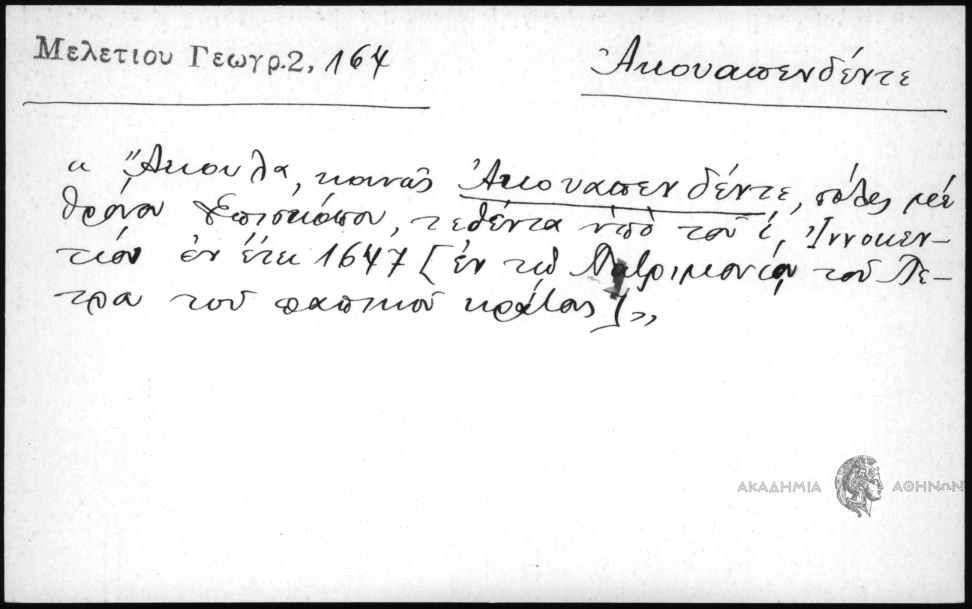 Μελετιου Γεωγρ.2, 164
Ἀκουαπενδέντε
« Ἄκουλα, κοινῶς Ἀκουαπενδέντε, πόλις μὲ
θρόνον Ἐπισκόπου, τεθέντα ὑπὸ τοῦ ί, Ἰννοκεν-
τίου ἐν ἔτει 1647 [ἐν τῷ Πατριμονίῳ τοῦ Πέ-
τρα τοῦ παπικοῦ κράτους]»
ΑΚΑΔΗΜΙΑ ΑΘΗΝΩΝ